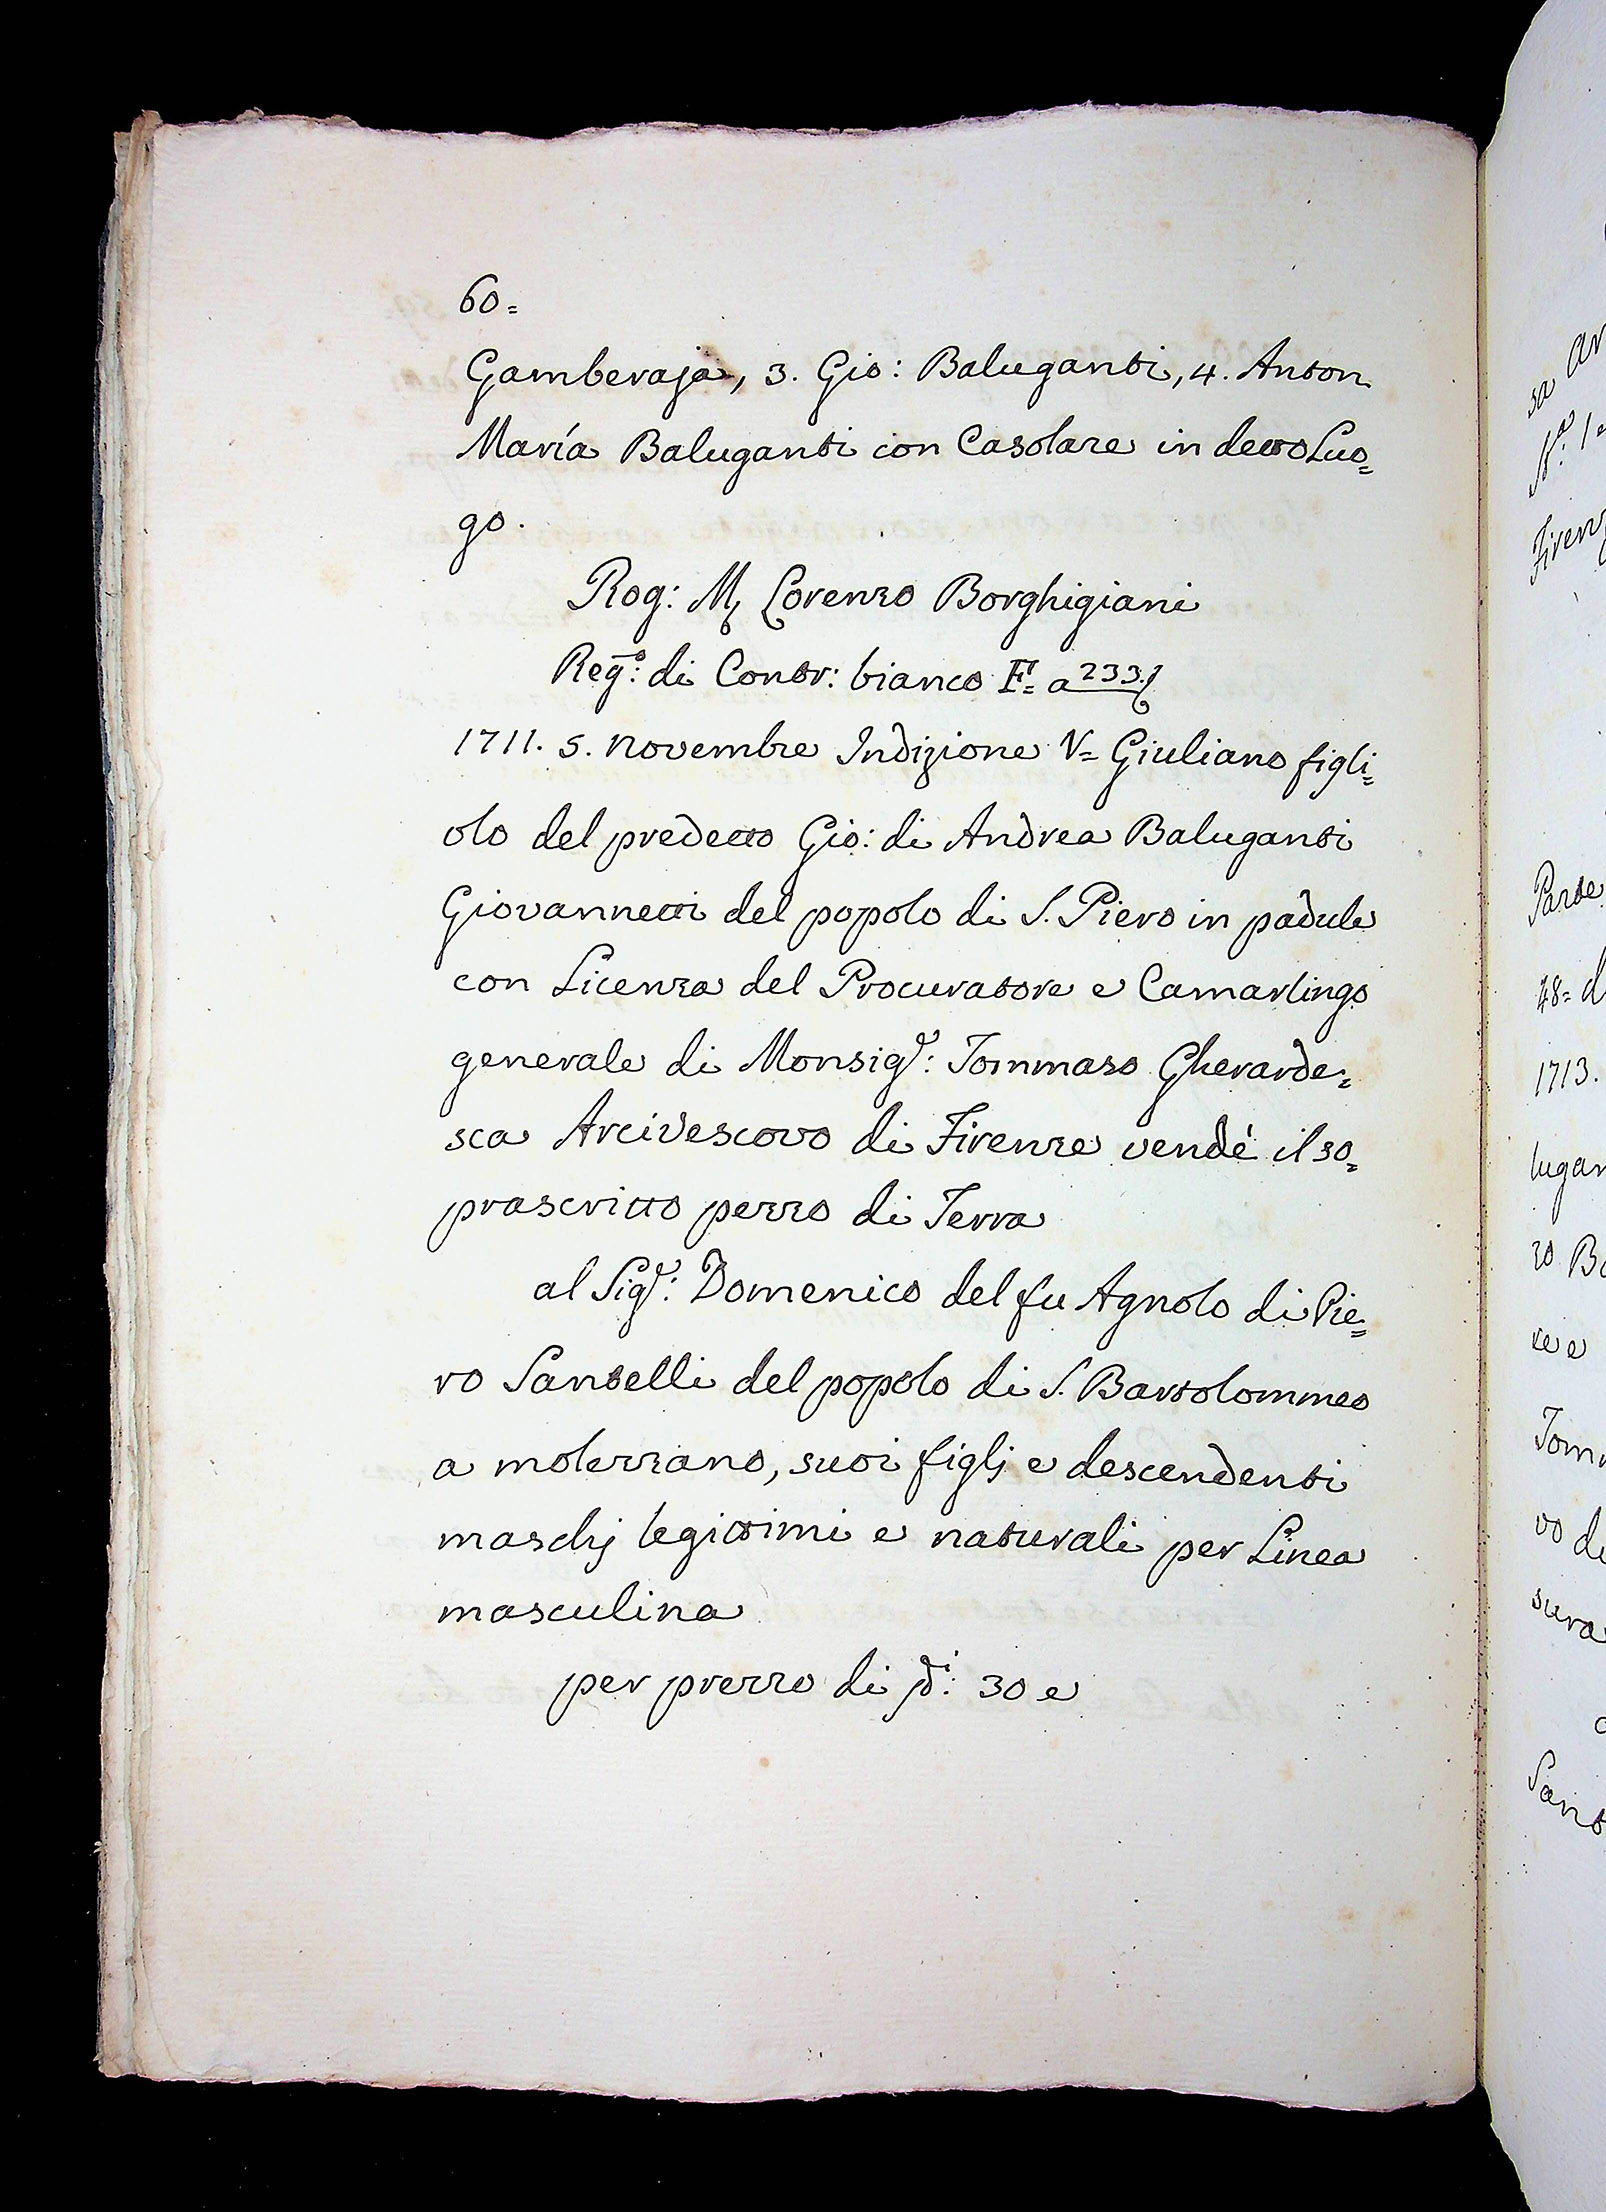 60=
Gamberaja, 3. Gio: Baluganti, 4. Anton
María Baluganti con Casolare in detto Luo=
go.
Rog: M, Lorenzo Borghigiani
Reg.º: di Contr: bianco F= a 233.
1711. 5. Novembre Indizione V= Giuliano figli=
olo del predetto Gio: di Andrea Baluganti
Giovannetti del popolo di S. Piero in padule
con Licenza del Procuratore e Camarlingo
generale di Monsig.r: Tommaso Gherarde=
sca Arcivescovo di Firenze vendé il so=
prascritto pezzo di Terra
al Sig.r: Domenico del fu Agnolo di Pie=
ro Santelli del popolo di S. Bartolommeo
a molezzano, suoi figlj e descendenti
maschj legittimi e naturali per Linea
masculina
per prezzo di 30 e
sa
Firenz
Parte
48= d
1713.
lugan
zo Ba
re e
Tomm
vo di
sura
Sant